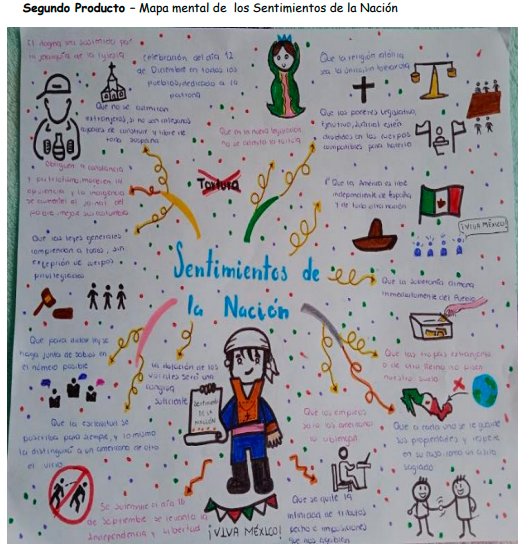 Segundo Producto – Mapa mental de los Sentimientos de la Nación
El dogma sea sostenido por
la jerarquía de la Iglesia
Celebración del día 12
de Diciembre en todos los
pueblos, dedicado a la
patrona
Que la religión católica
sea la única
Que no se admitan
extranjeros, si no son artesanos
capaces de construir y libre de
toda sospecha
Que en la nueva legislación
no se admita la tortura
Que los poderes legislativo,
ejecutivo, judicial estén
divididos en los cuerpos
compatibles para
Tortura
Obliguen a constancia
y patriotismo, moderen la
opulencia y la indigencia
se aumente el jornal del
pobre, mejore sus costumbres
1° Que la América es libre
independiente de España
y de toda otra nación
¡VIVA MÉXICO!
Que las leyes generales
comprendan a todos, sin
excepción de cuerpos
privilegiados
Sentimientos de
la Nación
Que la soberanía dimana
inmediatamente del Pueblo
Que para dictar ley se
haga junta de sabios en
el número posible
La dotación de los
vocales será una
congrua
suficiente
Que las tropas extranjeras
o de otro reino no pisen
nuestro suelo
SENTIMIENTOS
DE LA
NACIÓN
Que la esclavitud se
proscriba para siempre, y lo mismo
la distinguirá a un americano de otro
el vicio
Que los empleos
solo los americanos
lo obtengan
Que a cada uno se le guarde
sus propiedades y respete
en su casa como un asilo
sagrado
Se solemnice el día 16
de septiembre se levanto la
Independencia y Libertad
¡VIVA MÉXICO!
Que se quite la
infinidad de tributos
pecho o imposiciones
que nos agobian